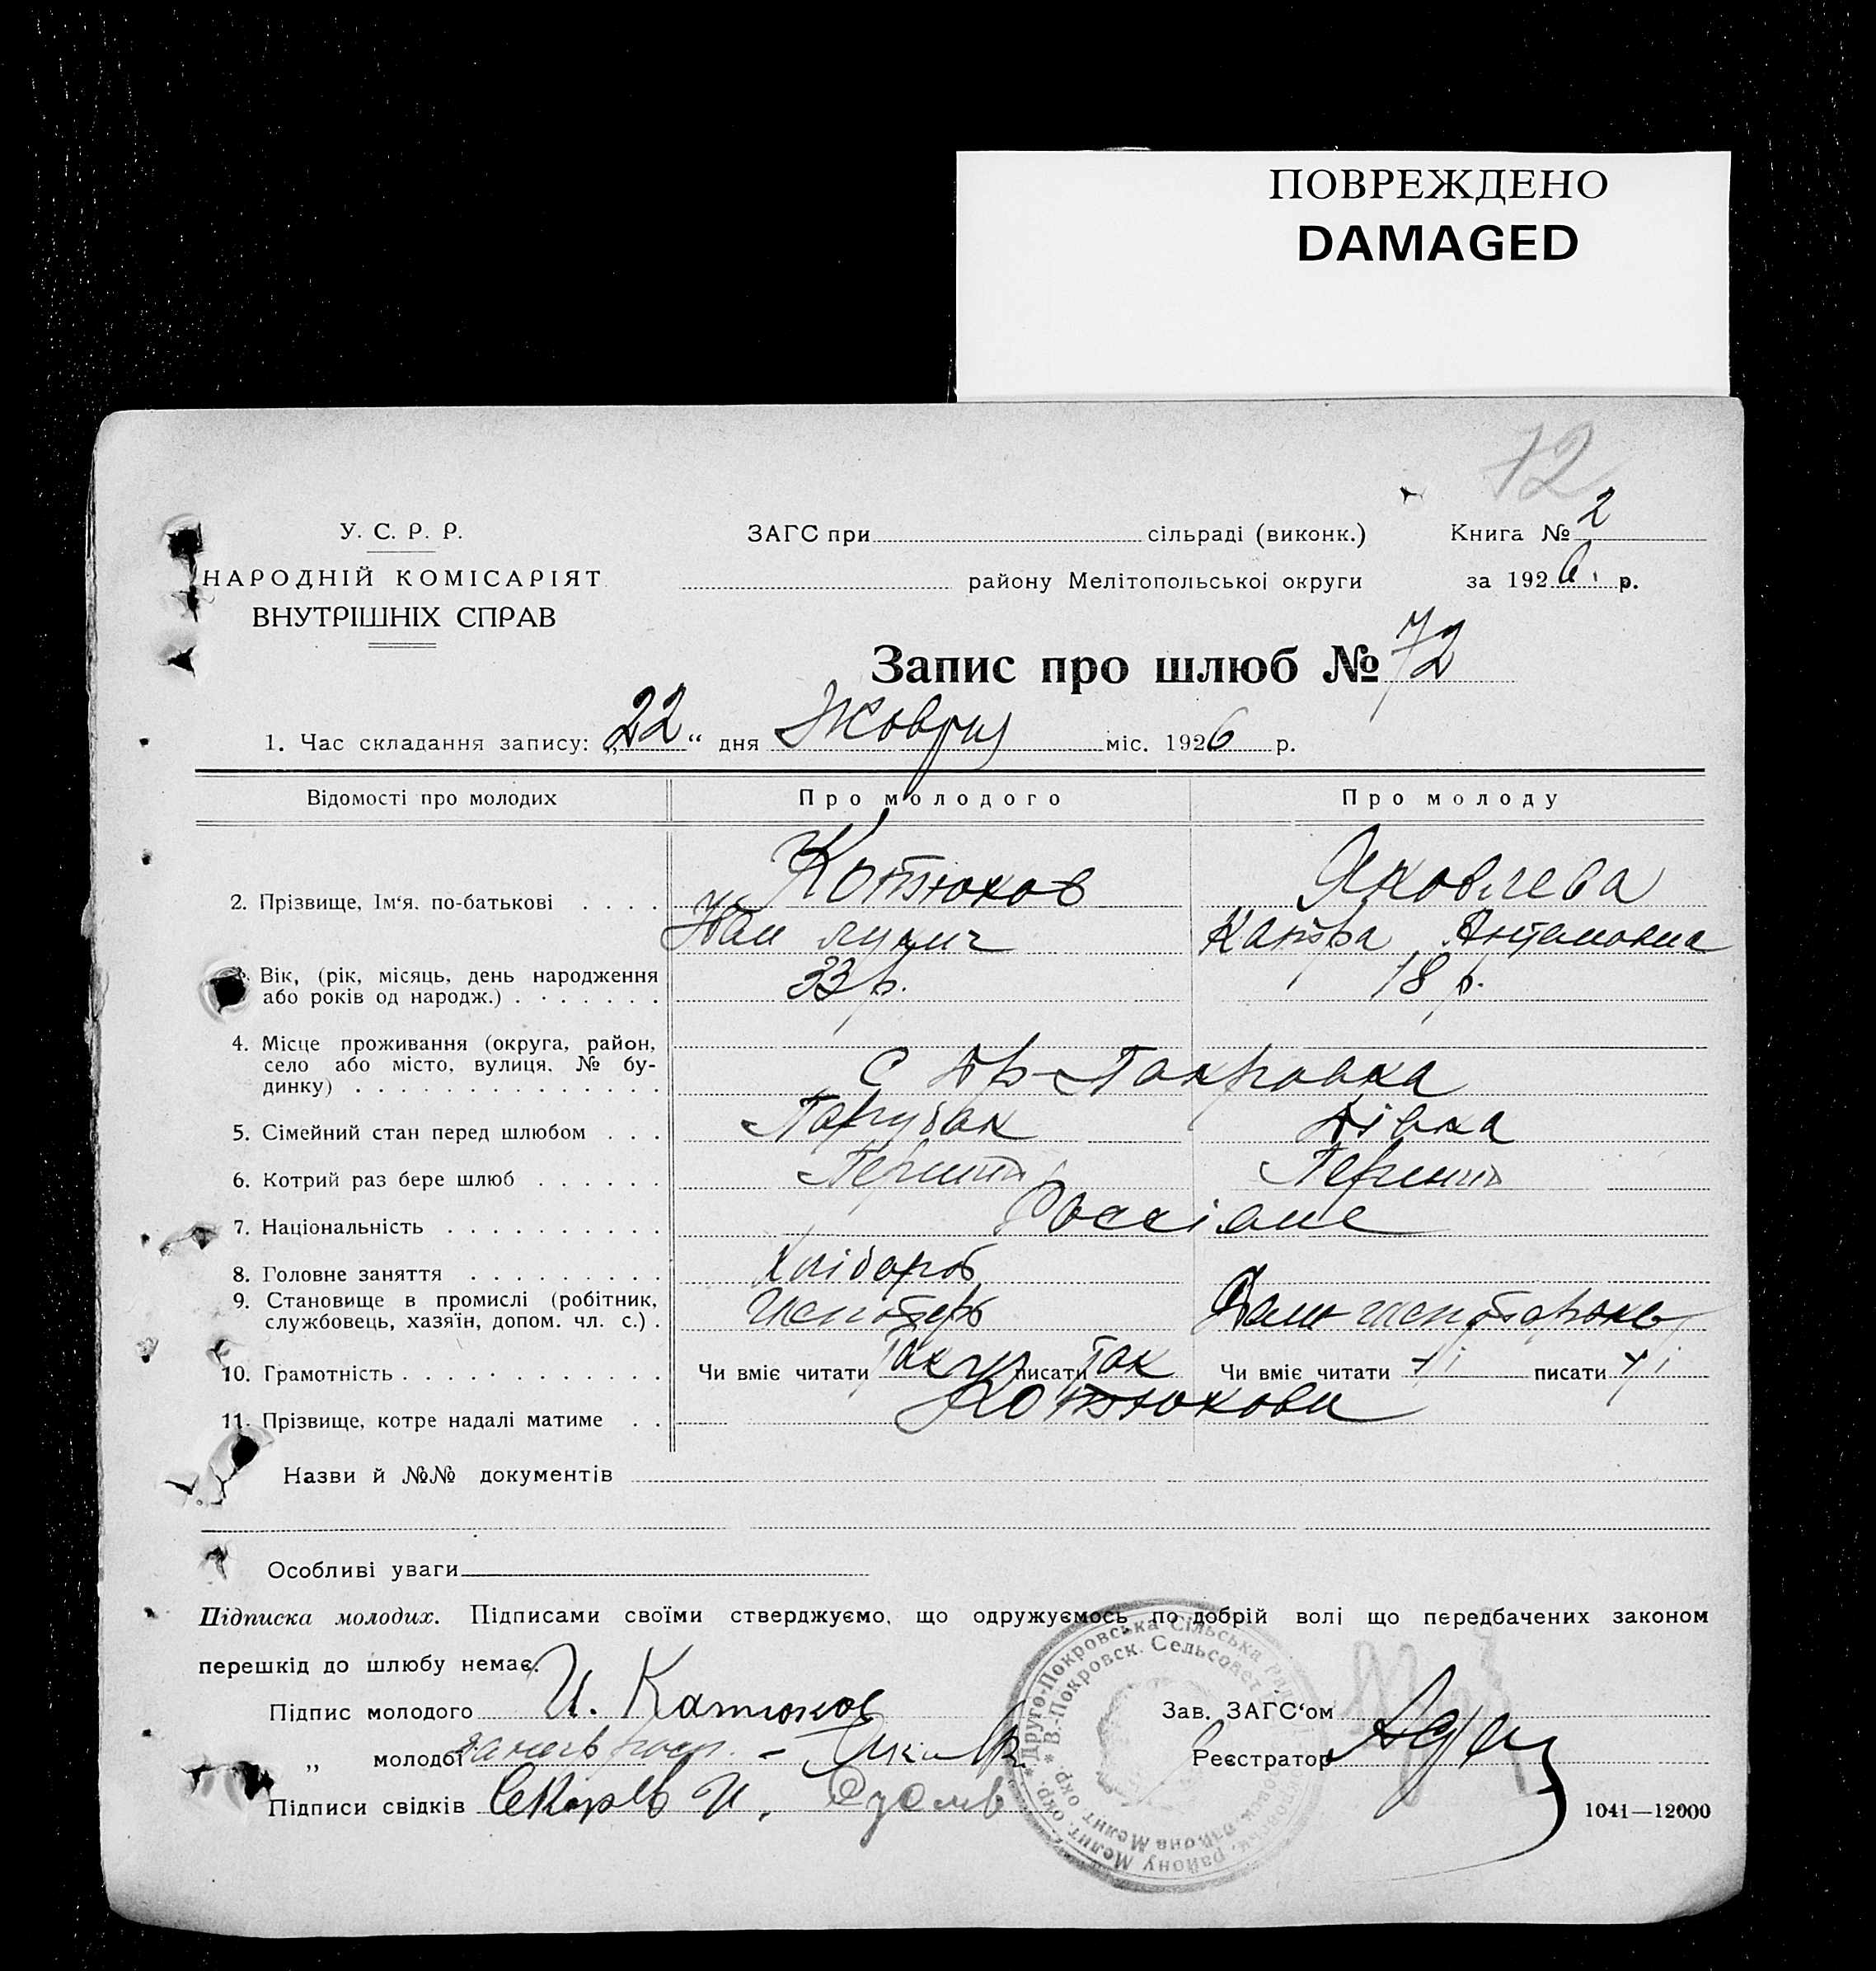 ПОВРЕЖДЕНО
DAMAGED
72
У. С. Р. Р.
НАРОДНІЙ КОМІСАРІЯТ
ВНУТРІШНІХ СПРАВ
ЗАГС при сільраді (виконк.)
району Мелітопольської округи
Книга № 2
за 1926 р.
Запис про шлюб № 72
1. Час складання запису: „22“ дня міс. 1926 р.
Відомості про молодих Про молодого Про молоду
2. Прізвище, Ім‘я, по-батькові Котюхов Яковлева
Антоновна
3. Вік, (рік, місяць, день народження 33 р. 18 р.
або років од народж.)
4. Місце проживання (округа, район,
село або місто, вулиця, № бу-
динку) С Др-Покровка
5. Сімейний стан перед шлюбом Парубок Дівка
6. Котрий раз бере шлюб Перший Перший
7. Національність Россіяне
8. Головне заняття Хлібороб
9. Становище в промислі (робітник,
службовець, хазяїн, допом. чл. с.)
10. Грамотність Чи вміє читати Так писати Так Чи вміє читати ні писати ні
11. Прізвище, котре надалі матиме Котюхови
Назви й №№ документів
Особливі уваги
Підписка молодих. Підписами своїми стверджуємо, що одружуємось по добрій волі що передбачених законом
перешкід до шлюбу немає.
Підпис молодого И. Катюхов
„ молодої
Підписи свідків И.
Зав. ЗАГС‘ом
Реєстратор
Друго-Покровська Сільська Рада
В.-Покровск. Сельсовет
району Меліт. окр.
района Меліт окр.
1041—12000